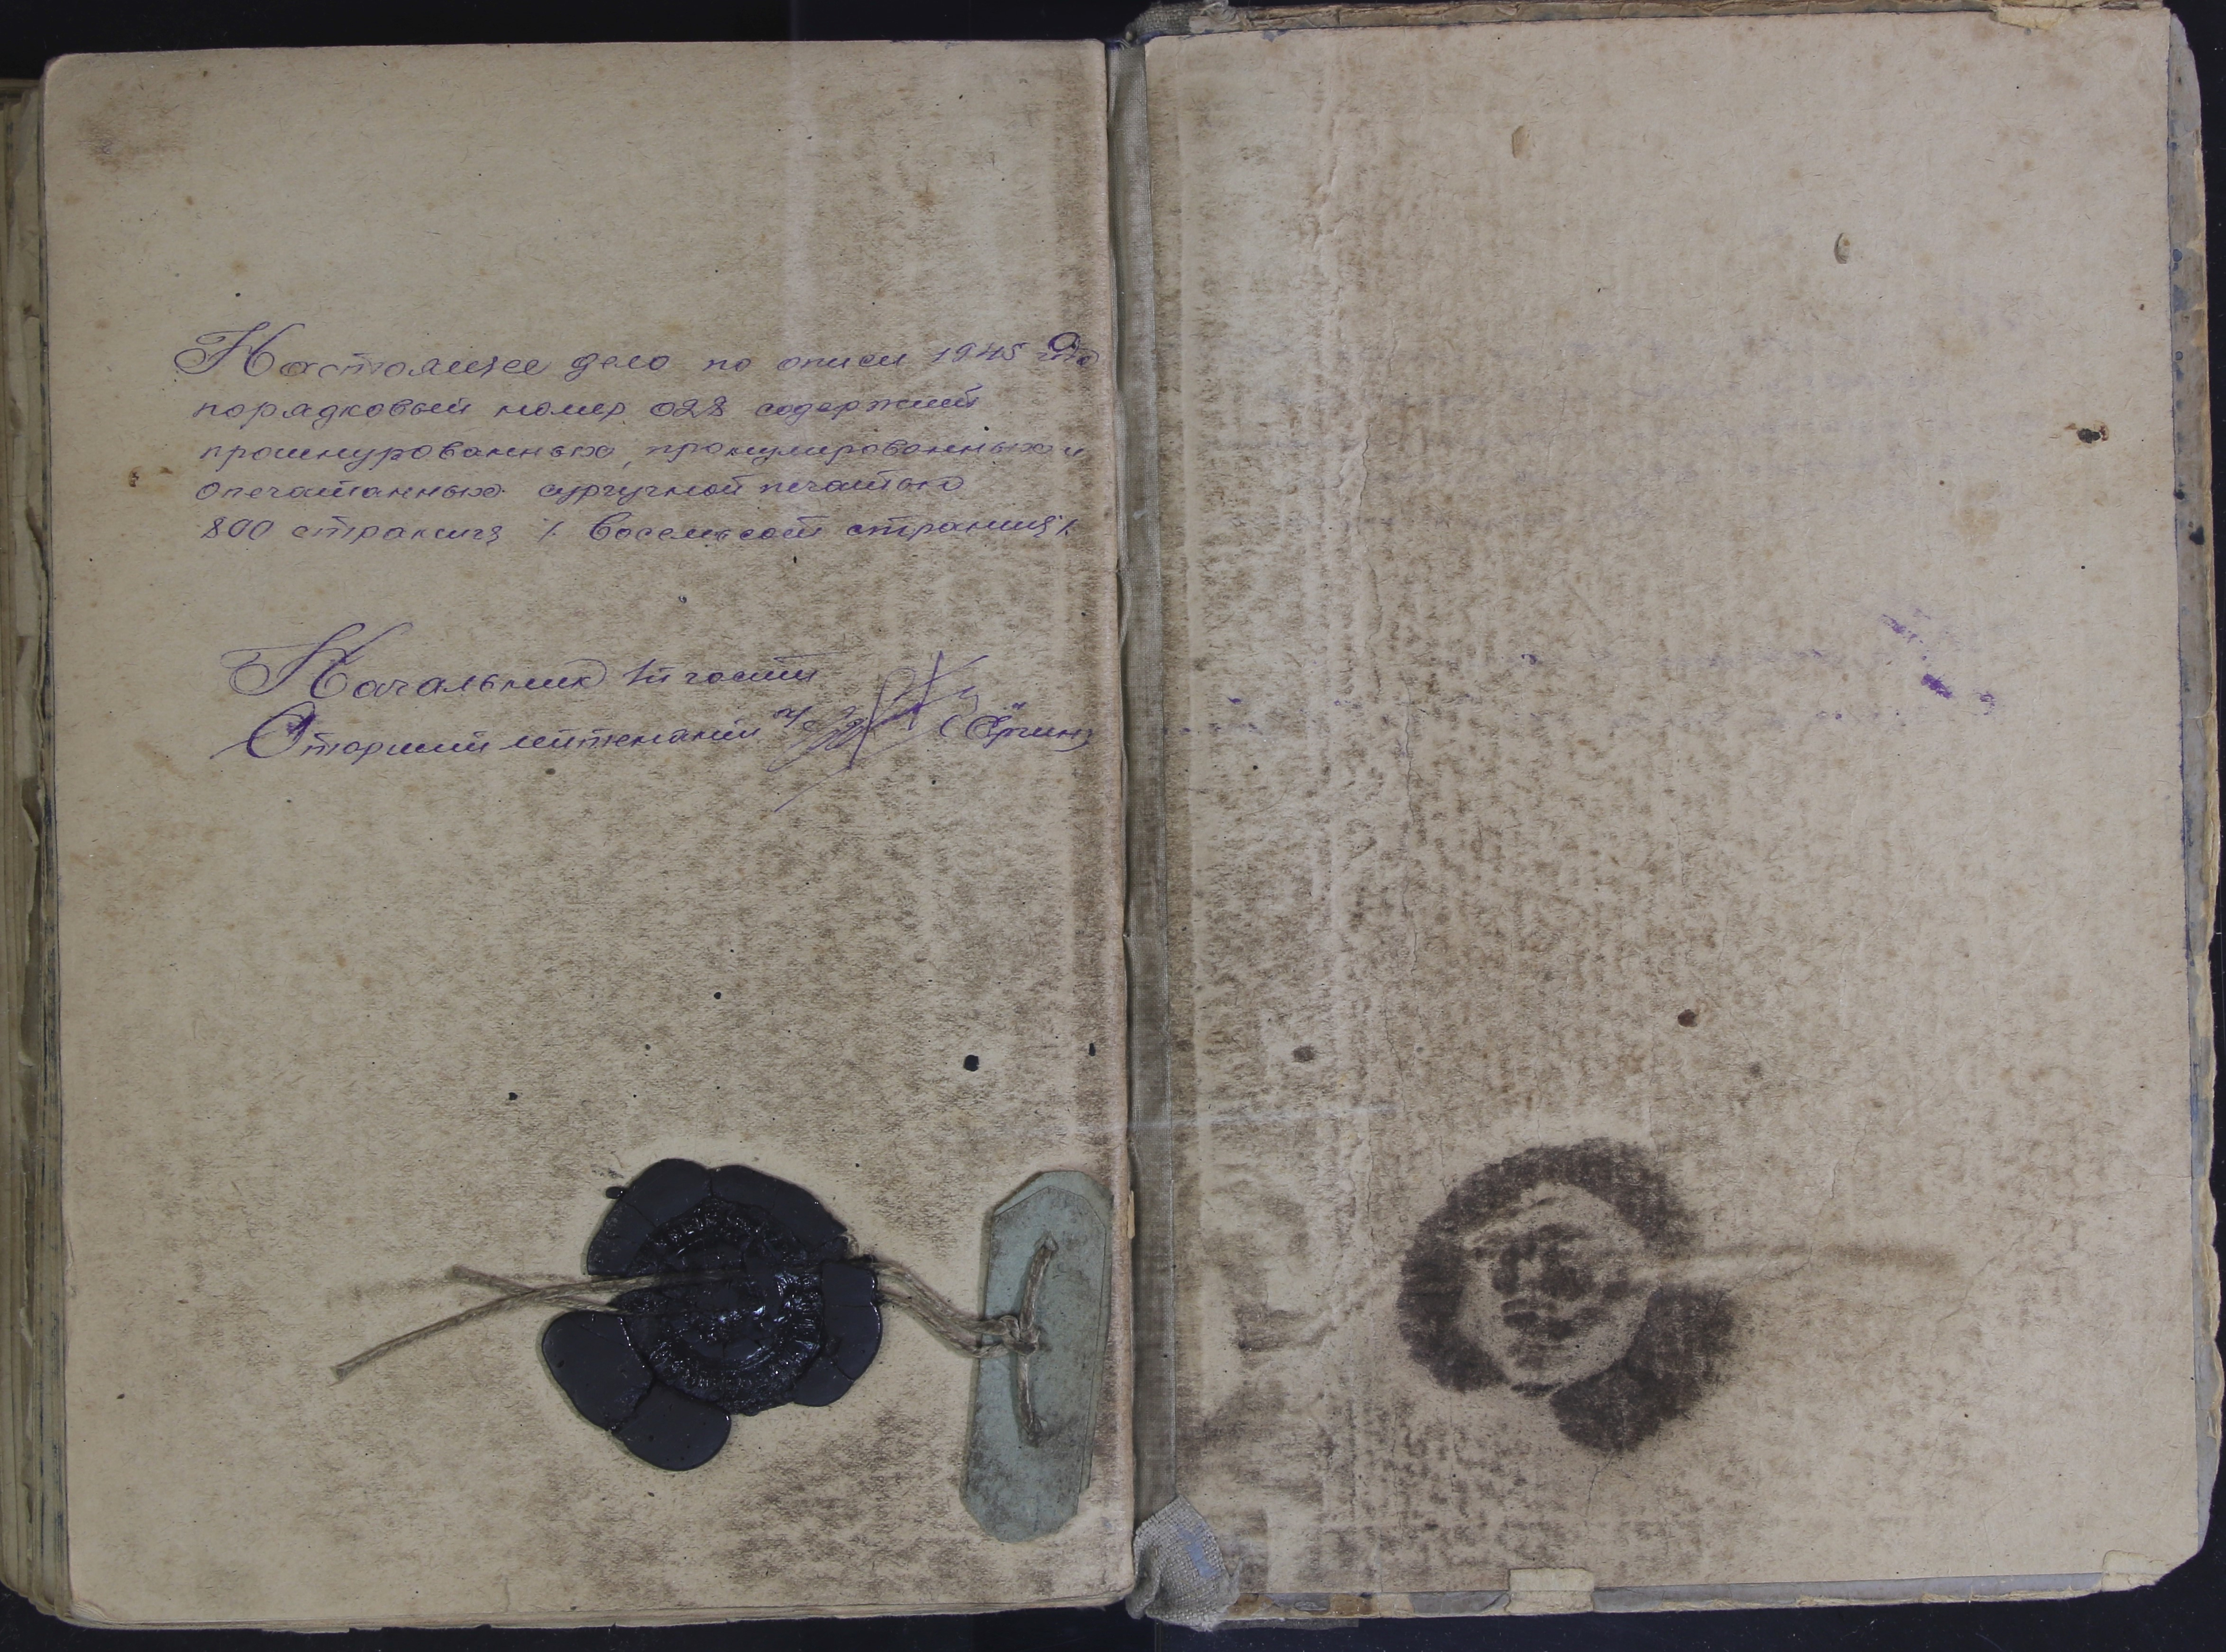 Настоящее дело по описи 1945 года
порядковый номер 028 содержит
прошнурованных, пронумированных и
опечатанных сургучной печатью
800 страниц /. восемьсот страниц /.
Начальник 1й части
Старший лейтенант